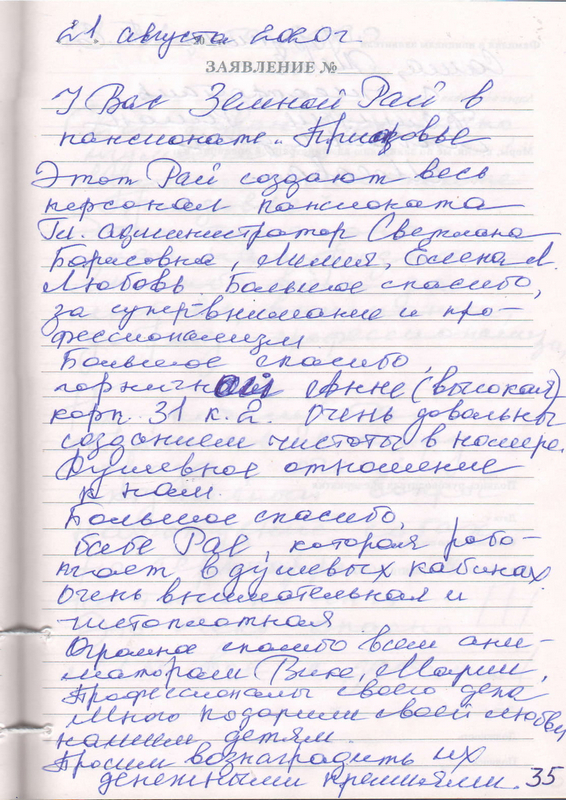 21. августа 2020г.
ЗАЯВЛЕНИЕ №
У Вас Земной Рай в
пансионате. Приазовье
Этот Рай создают весь
персонал пансионата
Гл. администратор Светлана
Борисовна, Лилия, Елена А.
Любовь. Большое спасибо,
за супервнимание и про-
фессионализм
Большое спасибо,
горничной Анне (высокая)
корп. 31 к. 2. Очень довольны
созданием чистоты в номере.
Душевное отношение
к нам.
Большое спасибо,
бабе Рае, которая рабо-
тает в душевых кабинах.
Очень внимательная и
чистоплотная
Огромное спасибо всем ани-
маторам Вике, Марии,
Профессионалы своего дела
Много подарили своей любви
нашим детям.
Просим вознаградить их
денежными премиями.
35